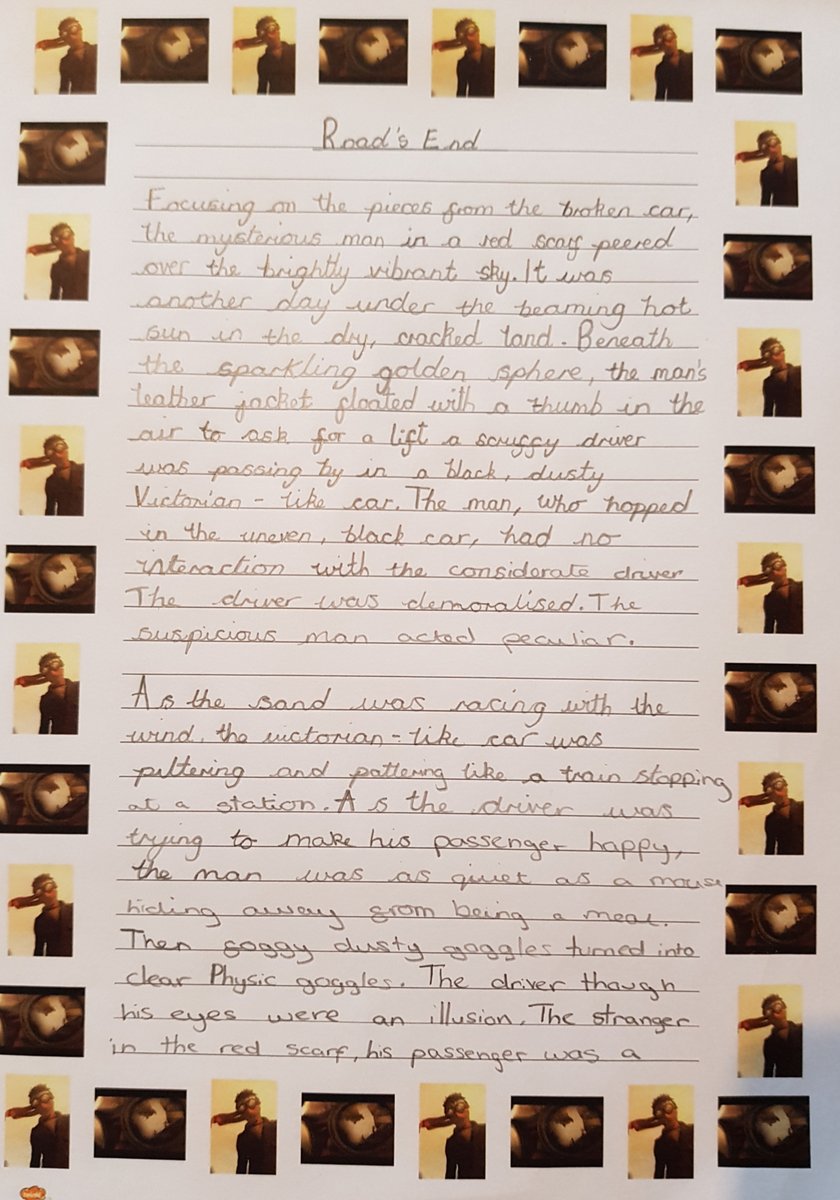 Road's End
Focusing on the pieces from the broken car,
the mysterious man in a red scarf peered
over the brightly vibrant sky. It was
another day under the beaming hot
sun in the dry, cracked land. Beneath
the sparkling golden sphere, the man's
leather jacket floated with a thumb in the
air to ask for a lift a scruffy driver
was passing by in a black, dusty
Victorian - like car. The man, who hopped
in the uneven, black car, had no
interaction with the considerate driver
The driver was demoralised. The
suspicious man acted peculiar.
As the sand was racing with the
wind, the victorian - like car was
pittering and pattering like a train stopping
at a station. As the driver was
trying to make his passenger happy,
the man was as quiet as a mouse
hiding away from being a meal.
Then foggy dusty goggles turned into
clear Physic goggles. The driver though
his eyes were an illusion. The stranger
in the red scarf, his passenger was a